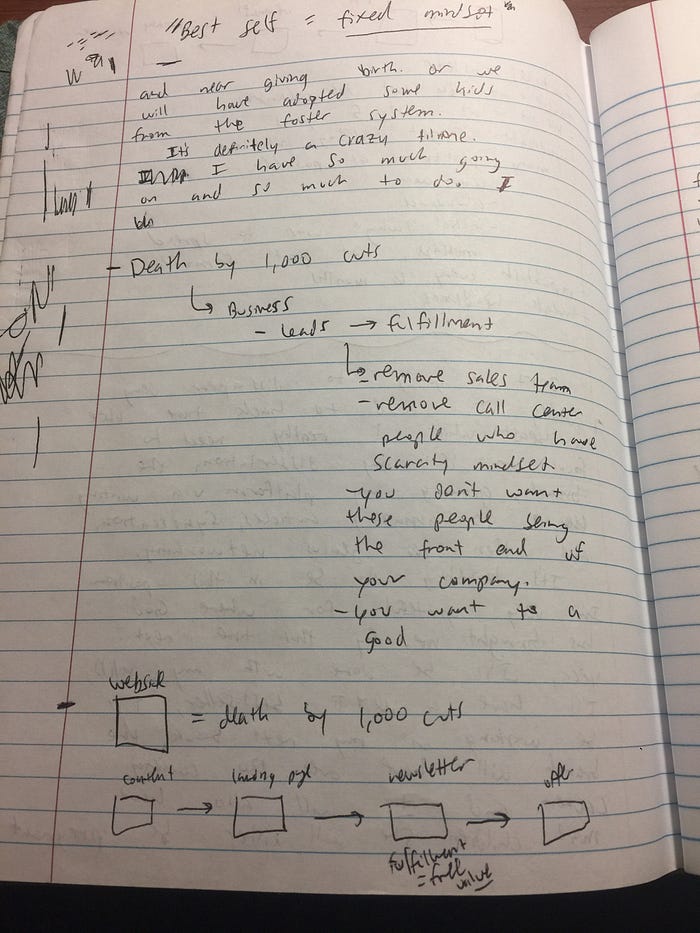 "Best self = fixed mindset
and near giving birth. or we
will have adopted some kids
from the foster system.
It's definitely a crazy time.
I have so much going
on and so much to do. I
- Death by 1,000 cuts
↳ Business
- Leads → fulfillment
↳ - remove sales team
- remove call center
people who have
scarcity mindset.
- you don't want
these people being
the front end of
your company.
- you want to a
good
website
= death by 1,000 cuts
content → landing page → newsletter → offer
fulfillment
= free
value